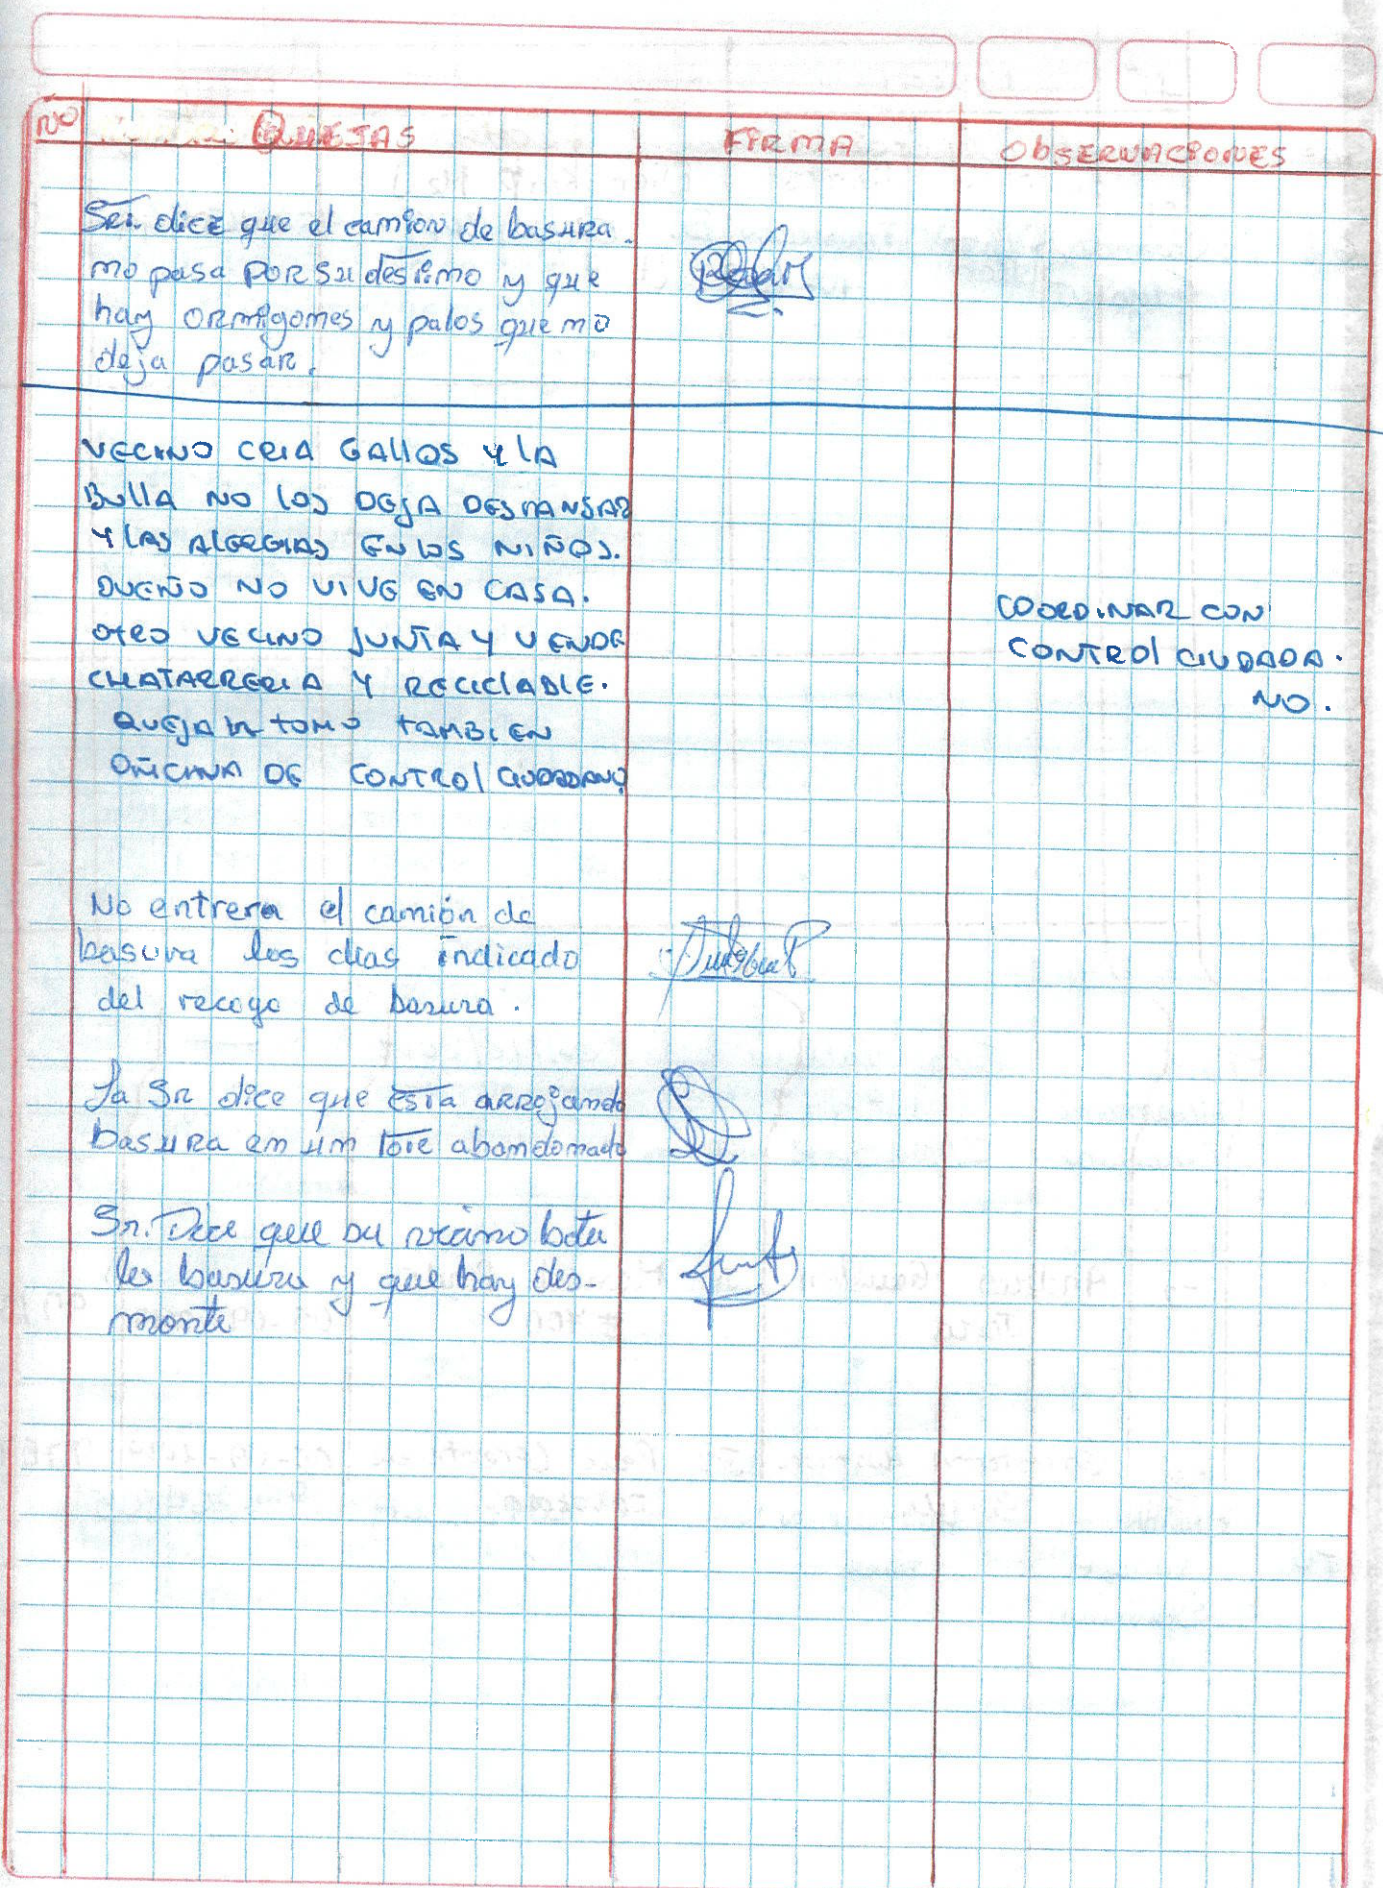 Nº QUEJAS FIRMA OBSERVACIONES
Sr. dice que el camion de basura
no pasa por su destino y que
hay ormigones y palos que no
deja pasar.
VECINO CRIA GALLOS Y LA
BULLA NO LOS DEJA DESCANSAR
Y LAS ALERGIAS EN LOS NIÑOS.
DUEÑO NO VIVE EN CASA.
OTRO VECINO JUNTA Y VENDE
CHATARRERIA Y RECICLABLE.
QUEJA TOMO TAMBIEN
OFICINA DE CONTROL CIUDADANO
COORDINAR CON
CONTROL CIUDADA-
NO.
No entrera el camión de
basura los dias indicado
del recogo de basura.
La Sr dice que esta arrojando
basura en un lote abandonado
Sr. Dice que su vecino bota
la basura y que hay des-
monte